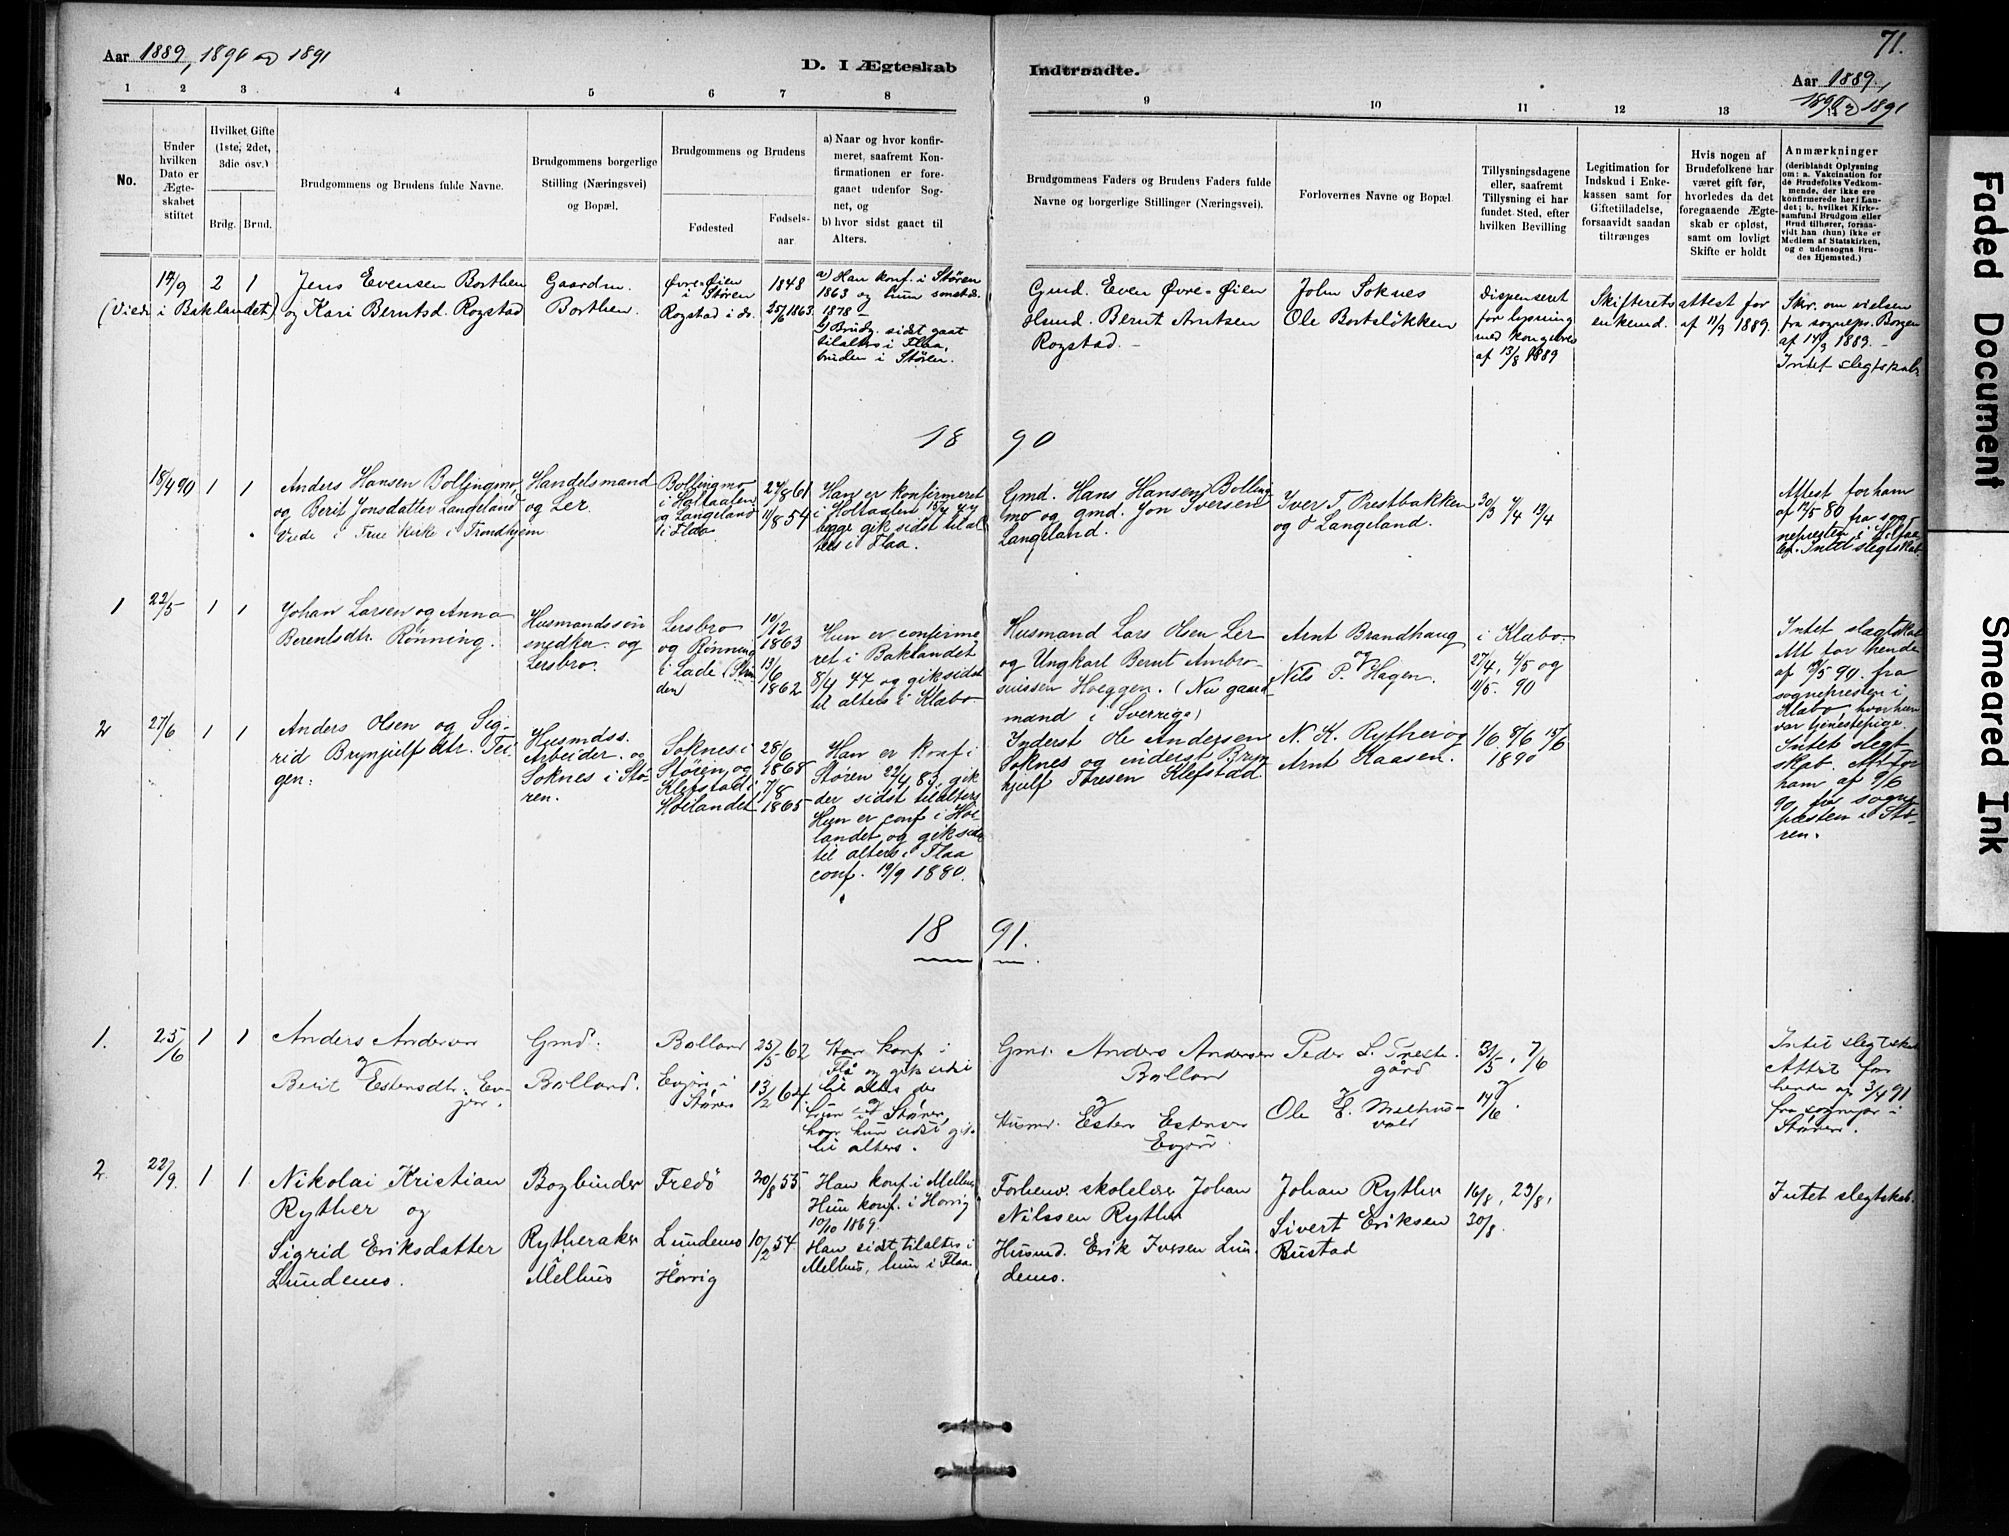 71.
Aar 1889, 1890 og 1891
D. I Ægteskab
Indtraadte.
Aar 1889,
1890 og 1891
1 2 3 4 5 6 7 8
9 10 11 12 13
No.
Under hvilken Dato er Ægte-skabet stiftet
Hvilket Gifte (1ste, 2det, 3die osv.)
Brdg. Brud.
Brudgommens og Brudens fulde Navne.
Brudgommens borgerlige Stilling (Næringsvei) og Bopæl.
Brudgommens og Brudens
Fødested
Fødsels-aar
a) Naar og hvor konfir-meret, saafremt Kon-firmationen er fore-gaaet udenfor Sog-net, og
b) hvor sidst gaaet til Alters.
Brudgommens Faders og Brudens Faders fulde Navne og borgerlige Stillinger (Næringsvei).
Forlovernes Navne og Bopæl
Tillysningsdagene eller, saafremt Tillysning ei har fundet Sted, efter hvilken Bevilling
Legitimation for Indskud i Enke-kassen samt for Giftetilladelse, forsaavidt saadan tiltrænges
Hvis nogen af Brudefolkene har været gift før, hvorledes da det foregaaende Ægte-skab er opløst, samt om lovligt Skifte er holdt
Anmærkninger
(deriblandt Oplysning om: a. Vakcination for de Brudefolks Vedkom-mende, der ikke ere konfirmerede her i Lan-det; b. hvilket Kirke-samfund Brudgom eller Brud tilhører, forsaa-vidt han (hun) ikke er Medlem af Statskirken, og c udensogns Bru-des Hjemsted.)
14/9 2 1
(Viede i Baklandet)
Jens Evensen Borthen
og Kari Berntsd. Rogstad
Gaardm.
Borthen.
Øvre-Øien
i Støren
Rogstad i ds.
1848
25/6 1863
a) Han konf. i Støren
1863 og hun sammest.
1878 –
b) Brudg. sidst gaat
tilalters i Flaa,
bruden i Støren.
Gmd. Even Øvre-Øien
Hsmd. Bernt Arntsen
Rogstad. –
John Soknes
Ole Bortsløkken
Dispenseret
for lysning
med kongebrev
af 13/8 1889
Skifterets attest for
enkemd. af 11/9 1889.
Skr. om vielsen
fra sognepr. Borgen
af 14/9 1889. –
Intet slegtskab.
18 90
18/4 90 1 1
Anders Hansen Bollingmo,
og Berit Jonsdatter Langeland
Viede i Frue Kirke i Trondhjem.
Handelsmand
og Ler.
Bollingmo
i Holtaalen
og Langeland
i Flaa.
27/8 61
11/8 54
Han er konfirmeret
i Holtaalen
begge gik sidst til al
ters i Flaa.
Gmd. Hans Hansen Bolling
mo og gmd. Jon Iversen
Langeland.
Iver T. Prestbakken
og O Langeland.
30/3 7/4 13/4
Attest for ham
af 12/5 80 fra sog
nepresten i Holtaa
len. Intet slegtskab.
1 22/5 1 1
Johan Larsen og Anna
Berentsdtr. Rønning.
Husmandssøn
snedker og
Lersbro.
Lersbro
og Rønning
i Lade (Strin
den)
10/12
1863
13/6
1862
Hun er confirme
ret i Baklandet
8/4 77 og gik sidst
til alters i Klæbo
Husmand Lars Olsen Ler
og Ungkarl Bernt Ambro-
siussen Hoeggen. (Nu gaard
mand i Sverrige)
Arnt Brandhaug
og
Nils P. Hagen.
i Klæbo.
27/4, 4/5 og
11/5. 90
Intet slegtskab
Att for hende
af 19/5 90. fra
sognepresten i
Klæbo, hvor hun
var tjenestepige.
2 27/6 1 1
Anders Olsen og Sig-
rid Brynjulfsdtr. Tei
gen.
Husmdss.
Arbeider. og
Soknes i Stø-
ren.
Soknes i
Støren og
Klefstad i
Høilandet
28/6
1868
7/8
1865
Han er konf. i
Støren 22/4 83, gik
der sidst tilalters
Hun er conf i Høi-
landet og gik sidst
til alters i Flaa
conf. 19/9 1880.
Inderst Ole Andersen
Soknes og inderst Bryn
hjulf Toresen Klefstad.
N. K. Ryther og
Arnt Haasen.
1/6 8/6 15/6
1890
Intet slegt
skab. Att for
ham af 9/6
90 fra sogne
presten i Stø-
ren.
18 91.
1. 25/6 1 1
Anders Andersen
og
Berit Estensdtr. Ev-
jen.
Gmd.
Bolland.
Bolland
Evjen i
Støren
25/5 62
13/2 64
Han konf i
Flå og gik sidst
til alters der
og
hun i Støren,
hvor hun sidst gik
til alters.
Gmd. Anders Andersen
Bolland
og
Husmd. Esten Estensen
Evjen.
Peder L. Treste-
gård
og
Ole E. Melhus-
vold
31/5, 7/6
og
14/6.
Intet slegtskab
Attest for
hende af 3/4 91
fra sognepr i
Støren.
2 22/9. 1 1
Nikolai Kristian
Ryther og
Sigrid Eriksdatter
Lundemo.
Bogbinder
Rytheraker
i
Melhus
Fredø
Lundemo
i
Horrig
20/8 55
10/2 54
Han konf. i Melhus
Hun konf. i Horrig
10/10 1869.
Han sidst tilalters i
Melhus, hun i Flaa
Forhenv. skolelærer Johan
Nilssen Ryther
Husmd. Erik Iversen Lun-
demo.
Johan Ryther
Sivert Eriksen
Rustad
16/8, 23/8,
30/8.
Intet slegtskab.
Faded Document
Smeared Ink